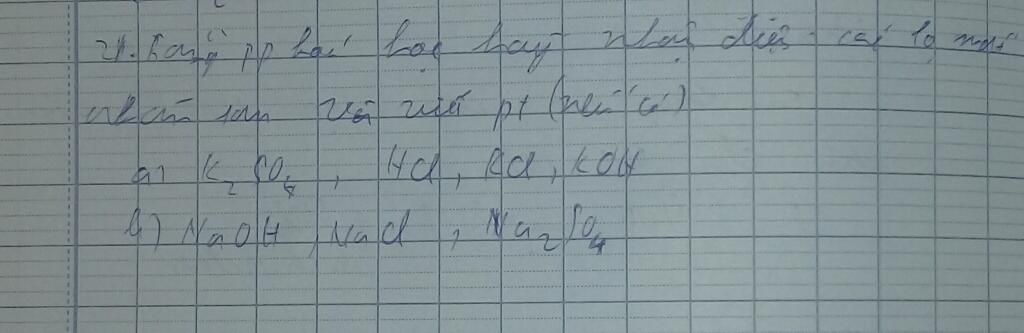 21. Bằng pp hoá học hãy nhận diện các lọ mất
nhãn sau và viết pt (nếu có)
a) K₂SO₄, HCl, KCl, KOH
b) NaOH, NaCl, Na₂SO₄